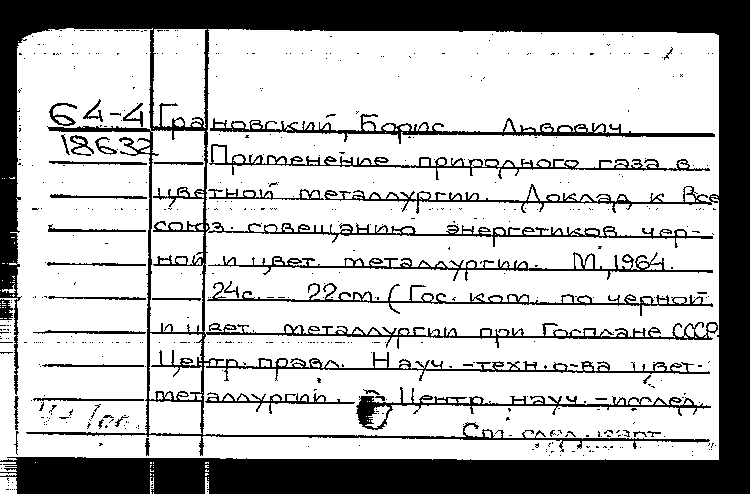 64-4 Грановский, Борис Львович.
18632 Применение природного газа в
цветной металлургии. Доклад к Все
союз. совещанию энергетиков чер-
ной и цвет. металлургии. М., 1964.
24с. 22cm. (Гос. ком. по черной
и цвет. металлургии при Госплане СССР.
Центр. правл. Науч.-техн. о-ва цвет.
металлургии. Центр. науч.-исслед.
См. след. карт.